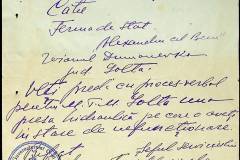 Catre
Ferma de Stat
Alexandru cel Bun
raionul Dumanovka
jud. Golta
Veti preda cu proces verbal
pentru Golta una
presa hidraulica pe care o aveti
in stare de nefunctionare.
Seful serviciului